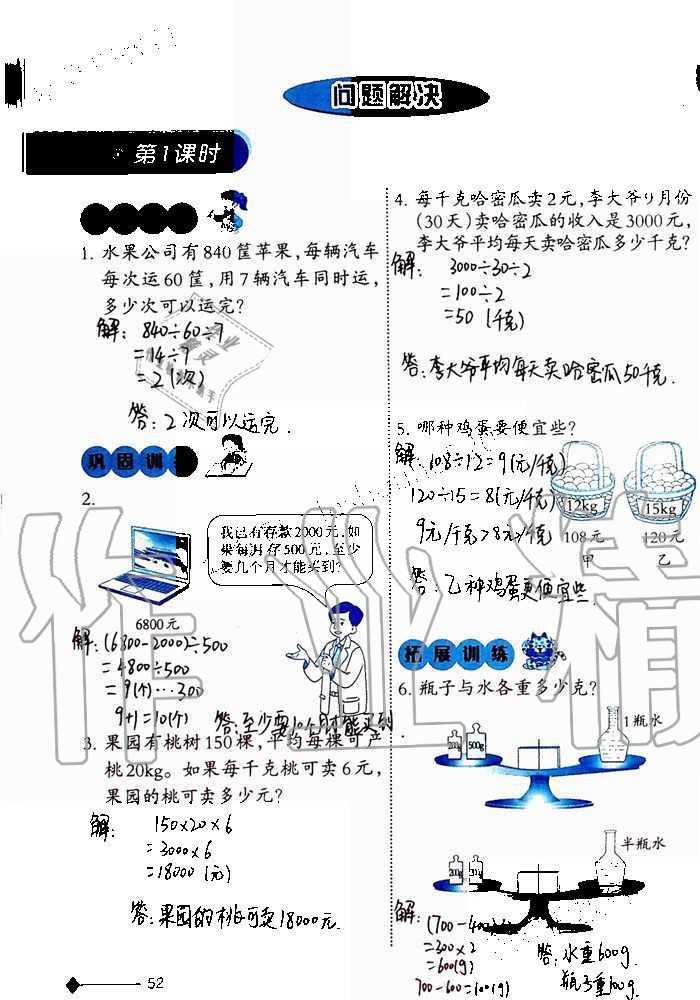 问题解决
第1课时
1. 水果公司有840筐苹果,每辆汽车
每次运60筐,用7辆汽车同时运,
多少次可以运完?
解: 840÷60÷7
=14÷7
=2(次)
答:2次可以运完.
巩固训
2.
我已有存款2000元,如
果每月存500元,至少
要几个月才能买到?
6800元
解:(6800-2000)÷500
=4800÷500
=9(个)…300
9+1=10(个) 答:至少要10个月才能买到
3. 果园有桃树150棵,平均每棵可产
桃20kg。如果每千克桃可卖6元,
果园的桃可卖多少元?
解: 150×20×6
=3000×6
=18000(元)
答:果园的桃可卖18000元.
52
4. 每千克哈密瓜卖2元,李大爷9月份
(30天)卖哈密瓜的收入是3000元,
李大爷平均每天卖哈密瓜多少千克?
解: 3000÷30÷2
=100÷2
=50(千克)
答:李大爷平均每天卖哈密瓜50千克.
5. 哪种鸡蛋要便宜些?
解: 108÷12=9(元/千克)
120÷15=8(元/千克)
9元/千克>8元/千克
12kg 15kg
108元 120元
甲 乙
答:乙种鸡蛋更便宜些.
拓展训练
6. 瓶子与水各重多少克?
1瓶水
200g 500g
半瓶水
200g
解: (700-400)×
=300×2
=600(g)
700-600=100(g)
答:水重600g.
瓶子重100g.
作业精